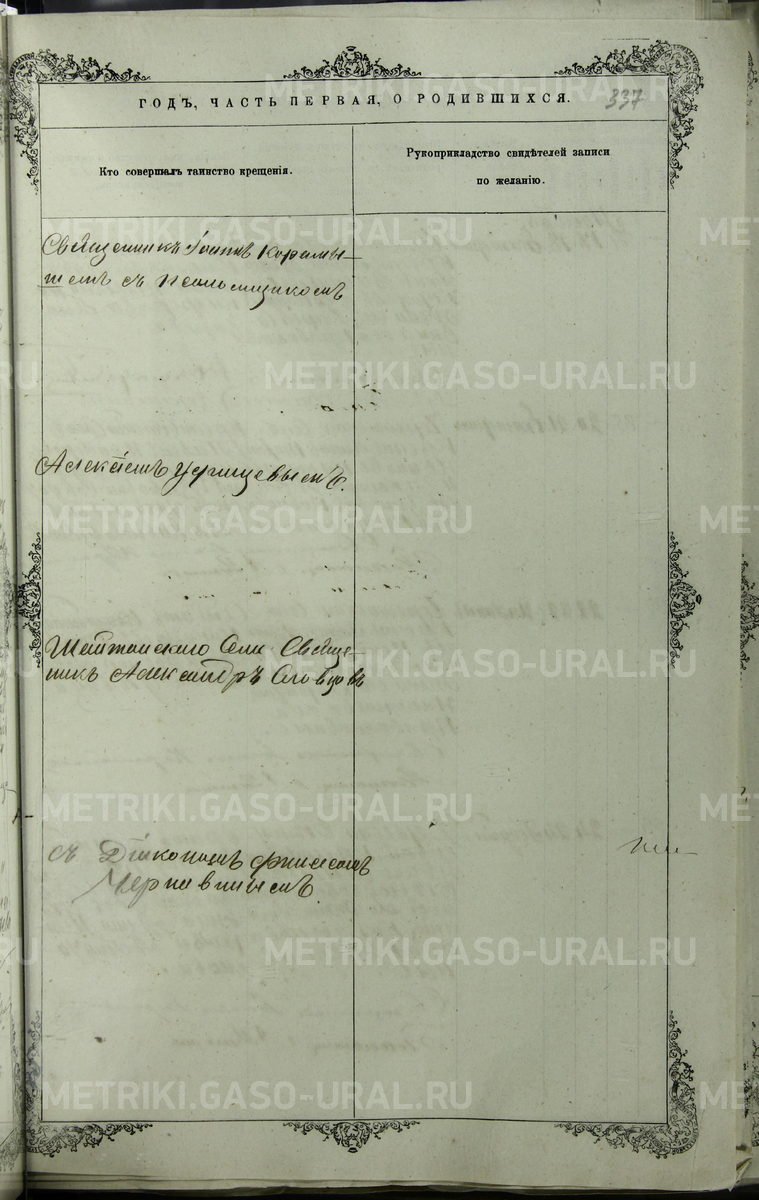 ГОДЪ, ЧАСТЬ ПЕРВАЯ, О РОДИВШИХСЯ.
337
Кто совершалъ таинство крещенія.
Рукоприкладство свидѣтелей записи
по желанію.
Священникъ Іоаннъ
съ псаломщикомъ
Алексѣемъ
Шайтанскаго Села Свяще-
нникъ Александръ Словцовъ
съ Діакономъ
METRIKI.GASO-URAL.RU